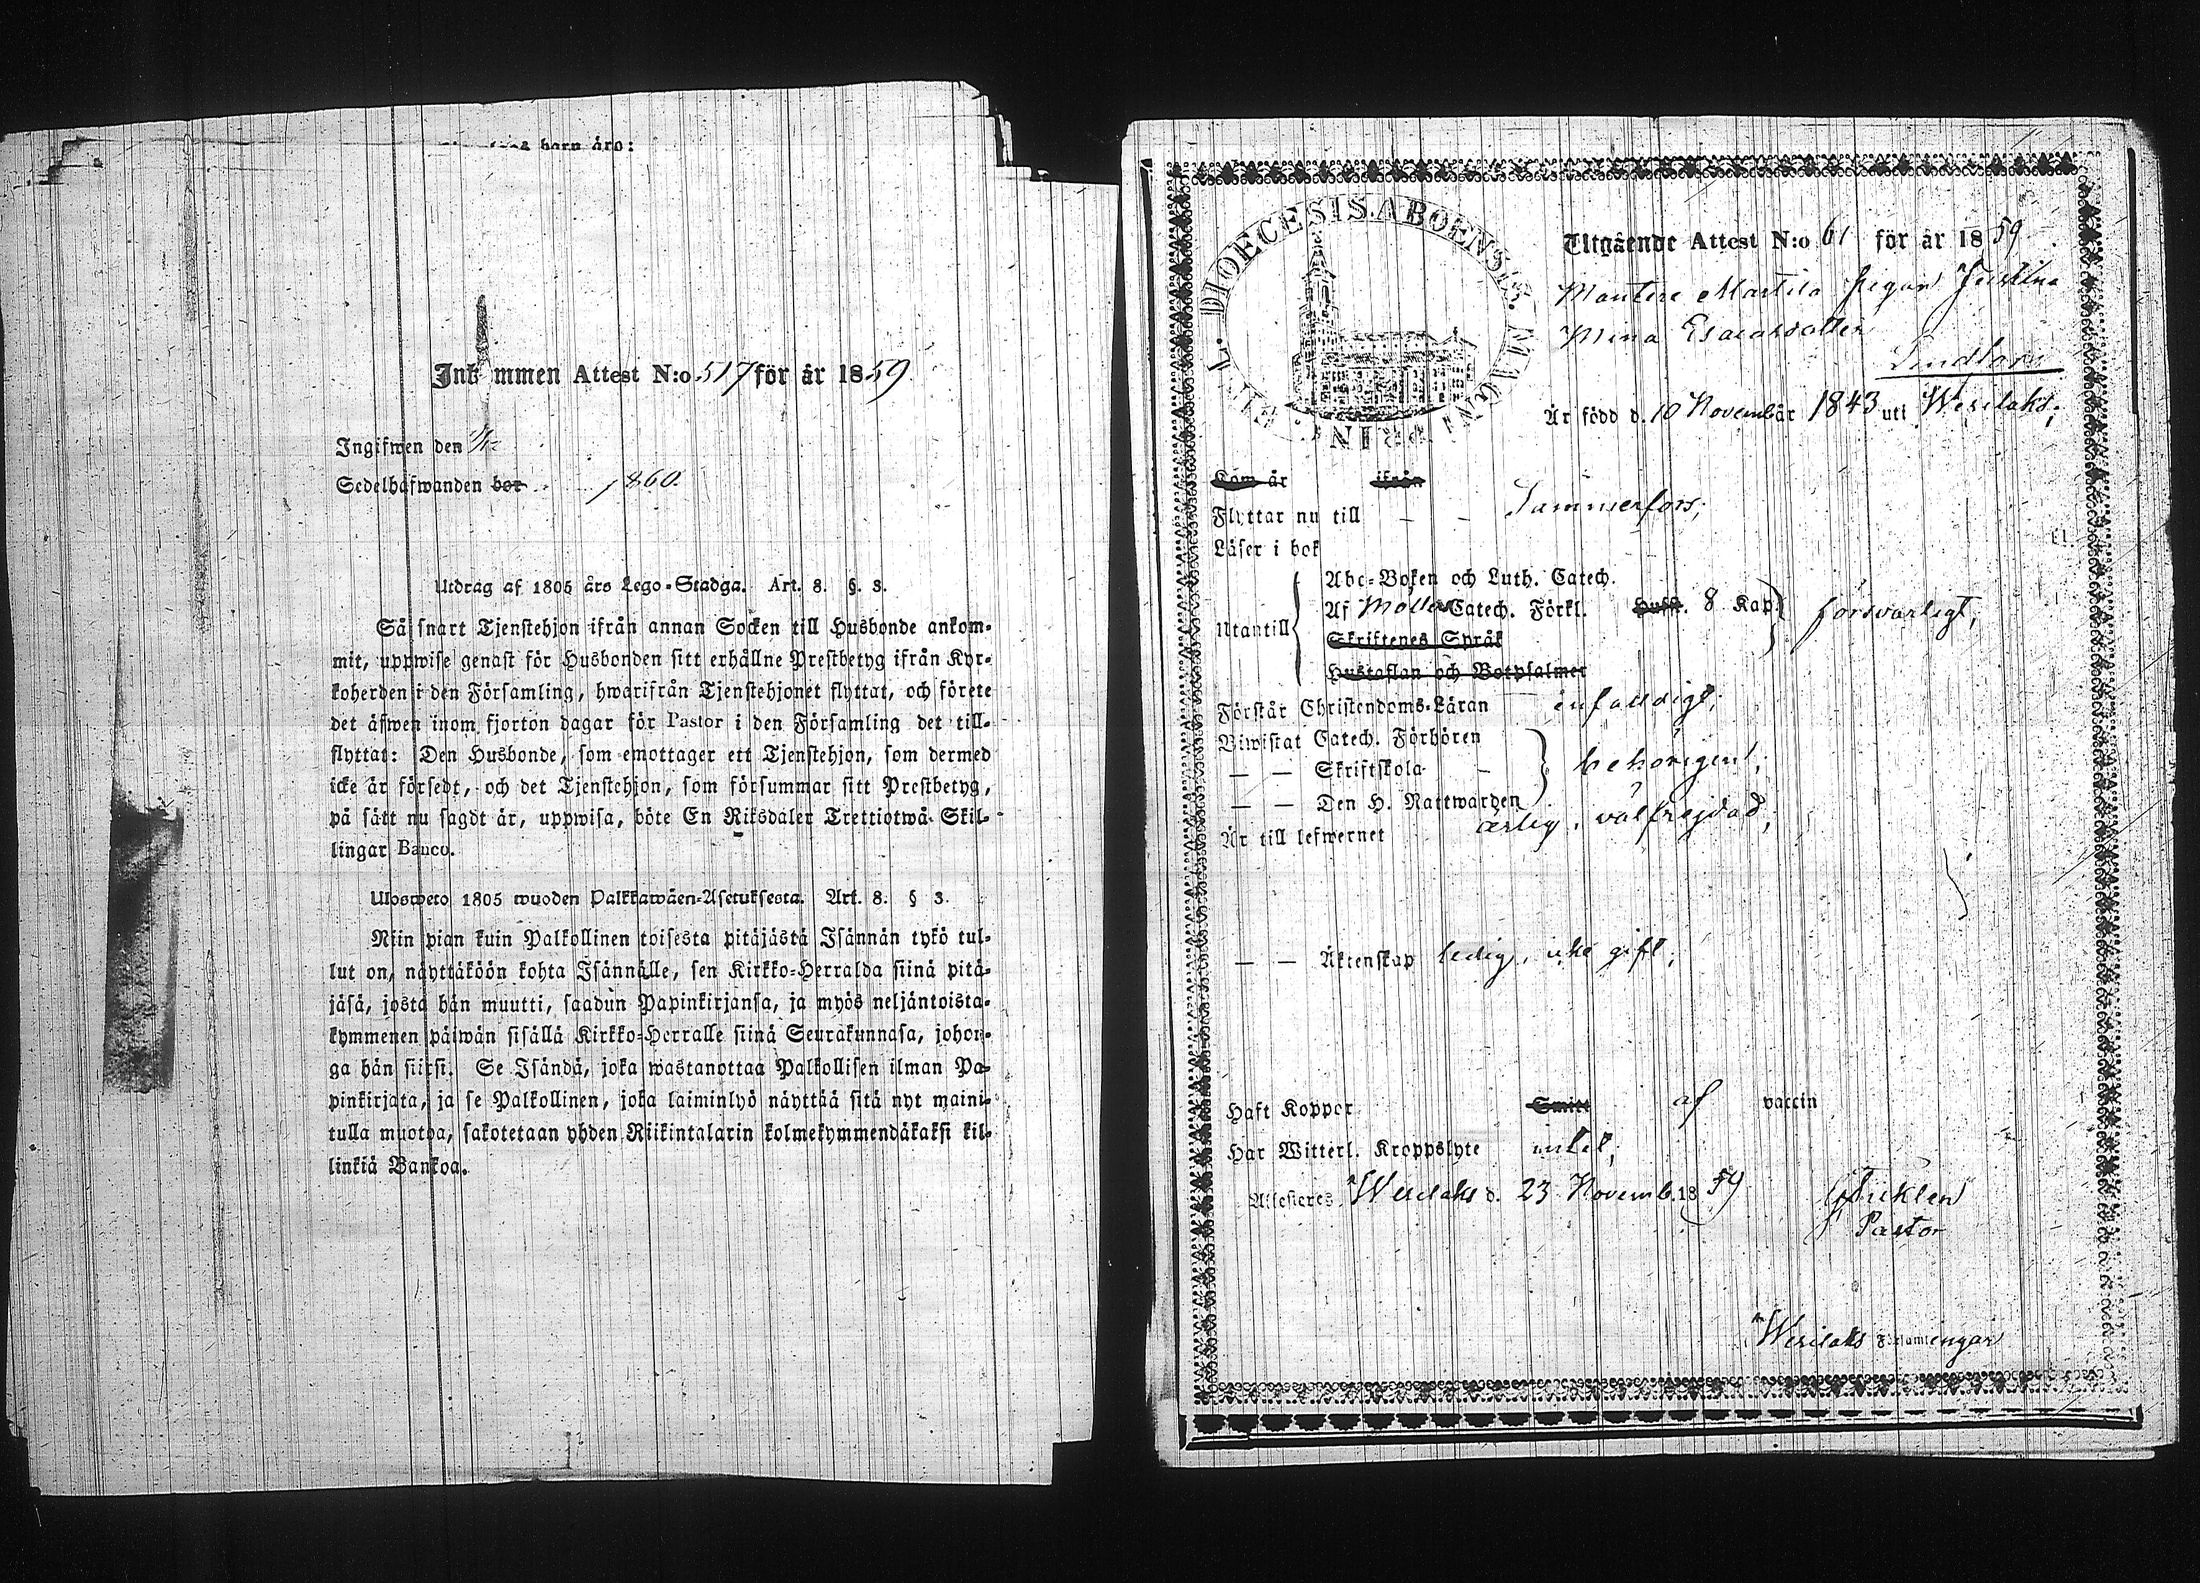 barn äro:
Inkommen Attest N:o 517 för år 1859.
Ingifwen den
Sedelhafwanden bor 1860.
Utdrag af 1805 års Lego-Stadga. Art. 8. §. 3.
Så snart Tjenstehjon ifrån annan Socken till Husbonde ankom-
mit, uppwise genast för Husbonden sitt erhållne Prestbetyg ifrån Kyr-
koherden i den Församling, hwarifrån Tjenstehjonet flyttat, och förete
det äfwen inom fjorton dagar för Pastor i den Församling det till-
flyttat: Den Husbonde, som emottager ett Tjenstehjon, som dermed
icke är försedt, och det Tjenstehjon, som försummar sitt Prestbetyg,
på sätt nu sagdt är, uppwisa, böte En Riksdaler Trettiotwå Skil-
lingar Banco.
Ulosweto 1805 wuoden Palkkawäen-Asetuksesta. Art. 8. § 3.
Niin pian kuin Palkollinen toisesta pitäjästä Isännän tykö tul-
lut on, näyttäköön kohta Isännälle, sen Kirkko-Herralda siinä pitä-
jäsä, josta hän muutti, saadun Papinkirjansa, ja myös neljäntoista-
kymmenen päiwän sisällä Kirkko-Herralle siinä Seurakunnasa, johon-
ga hän siirsi. Se Isändä, joka wastanottaa Palkollisen ilman Pa-
pinkirjata, ja se Palkollinen, joka laiminlyö näyttää sitä nyt maini-
tulla muotoa, sakotetaan yhden Riikintalarin kolmekymmendäkaksi kil-
linkiä Bankoa.
DIOECESIS. ABOENSIS.
Utgående Attest N:o 61 för år 1859.
Mantere Martila pigan Justina
Mina Esaiasdotter
Lindlars
Är född d. 10 November 1843 uti Wesilaks;
Kom år ifrån
Flyttar nu till — — Tammerfors;
Läser i bok
Abc-Boken och Luth. Catech.
Utantill Af Möllers Catech. Förkl. Hufst. 8 Kap. försvarligt;
Skriftenes Språk
Hustaflan och Botpsalmer
Förstår Christendoms-Läran enfaldigt;
Biwistat Catech. Förhören
— — Skriftskola — behörigen;
— — Den H. Nattwarden
Är till lefwernet ärlig, välfrejdad,
— — Äktenskap ledig, icke gift;
Haft Koppor Smitt af vaccin
Har Witterl. Kroppslyte intet;
Attesteres Wesilaks d. 23 Novemb. 1859
Pastor
Wesilaks Församlingar